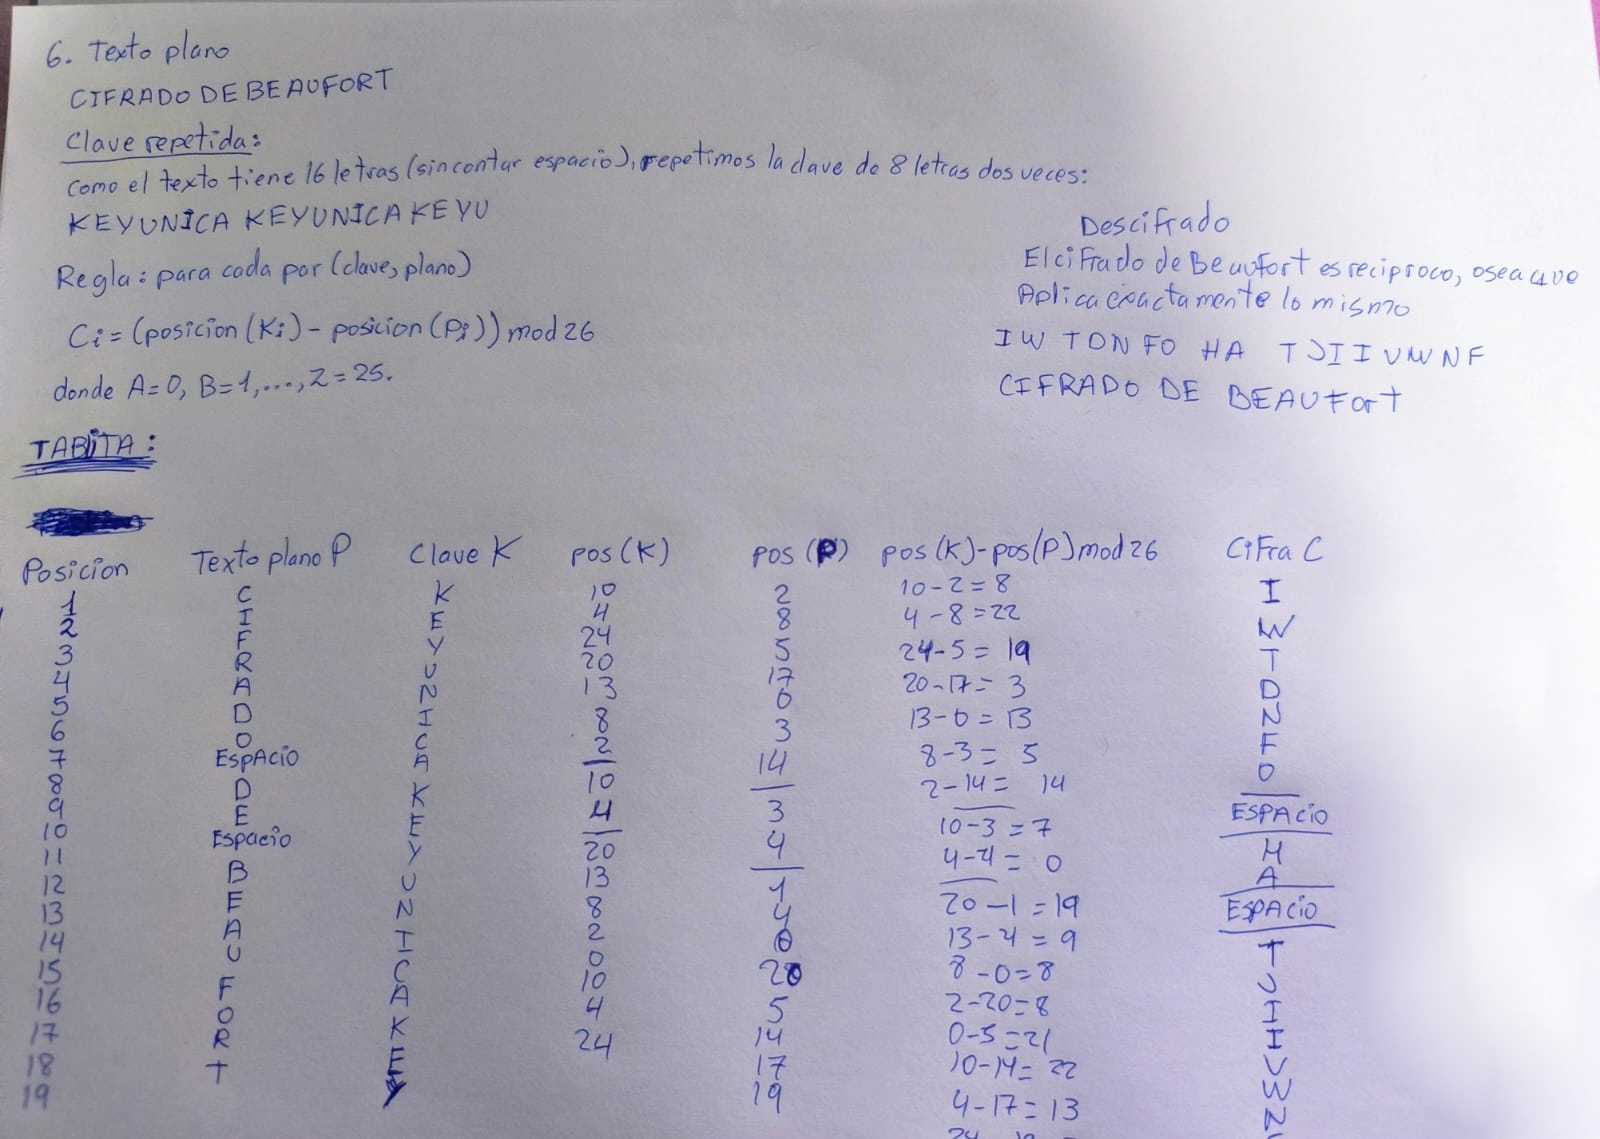 6. Texto plano
CIFRADO DE BEAUFORT
Clave repetida:
Como el texto tiene 16 letras (sin contar espacio), repetimos la clave de 8 letras dos veces:
KEYUNICA KEYUNICA KEYU
Regla: para cada par (clave, plano)
Ci = (posicion (Ki) - posicion (Pi)) mod 26
donde A=0, B=1,..., Z=25.
Descifrado
El cifrado de Beaufort es reciproco, osea que
Aplica exactamente lo mismo
IW TDN FO HA TJIIVWNF
CIFRADO DE BEAUFort
TABITA:
Posicion Texto plano P Clave K pos (K) pos (P) pos (K)-pos(P) mod 26 CiFra C
1 C K 10 2 10-2=8 I
2 I E 4 8 4-8=22 W
3 F Y 24 5 24-5= 19 T
4 R U 20 17 20-17= 3 D
5 A N 13 0 13-0=13 N
6 D I 8 3 8-3= 5 F
7 O C 2 14 2-14= 14 O
8 ESPACIO A — — — ESPACIO
9 D K 10 3 10-3=7 H
10 E E 4 4 4-4= 0 A
11 Espacio Y — — — ESPACIO
12 B U 20 1 20-1=19 T
13 E N 13 4 13-4=9 J
14 A I 8 0 8-0=8 I
15 U C 2 20 2-20=8 I
16 F A 0 5 0-5=21 V
17 O K 10 14 10-14= 22 W
18 R E 4 17 4-17= 13 N
19 T Y 24 19